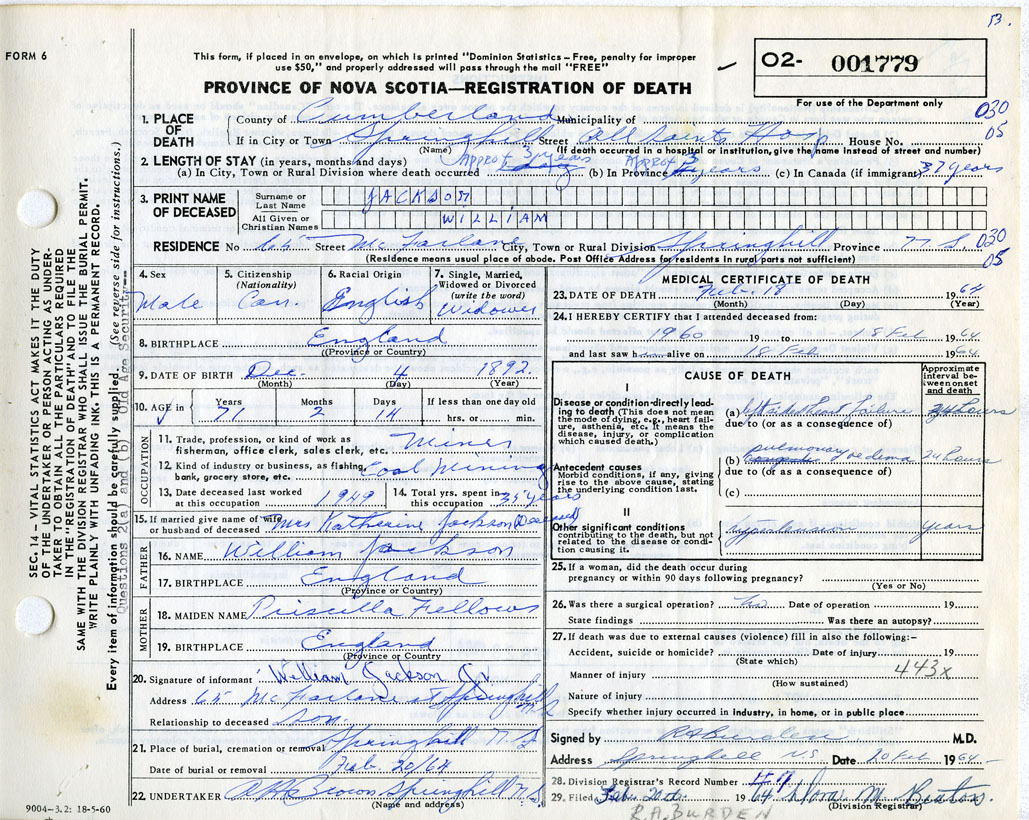 B.
FORM 6
This form, if placed in an envelope, on which is printed "Dominion Statistics – Free, penalty for improper
use $50," and properly addressed will pass through the mail "FREE"
O2- 001779
For use of the Department only
PROVINCE OF NOVA SCOTIA—REGISTRATION OF DEATH
1. PLACE OF DEATH
County of Cumberland Municipality of
030
If in City or Town Springhill Street All Saints Hos. House No.
05
(Name) (If death occurred in a hospital or institution, give the name instead of street and number)
2. LENGTH OF STAY (in years, months and days)
(a) In City, Town or Rural Division where death occurred Approx 37 years (b) In Province Approx 3 years (c) In Canada (if immigrant) 37 years
3. PRINT NAME OF DECEASED
Surname or Last Name JACKSON
All Given or Christian Names WILLIAM
RESIDENCE No 65 Street McFarlane City, Town or Rural Division Springhill Province N.S. 030
(Residence means usual place of abode. Post Office Address for residents in rural parts not sufficient) 05
4. Sex Male
5. Citizenship (Nationality) Can.
6. Racial Origin English
7. Single, Married, Widowed or Divorced (write the word) Widower
8. BIRTHPLACE England
(Province or Country)
9. DATE OF BIRTH Dec. 4 1892
(Month) (Day) (Year)
10. AGE in Years Months Days If less than one day old
71 2 14 hrs. or min.
OCCUPATION
11. Trade, profession, or kind of work as
fisherman, office clerk, sales clerk, etc. Miner
12. Kind of industry or business, as fishing,
bank, grocery store, etc. Coal Mining
13. Date deceased last worked
at this occupation 1949
14. Total yrs. spent in
this occupation 35 years
15. If married give name of wife
or husband of deceased Mrs Katherine Jackson (Deceased)
FATHER
16. NAME William Jackson
17. BIRTHPLACE England
(Province or Country)
MOTHER
18. MAIDEN NAME Priscilla Fellows
19. BIRTHPLACE England
(Province or Country)
20. Signature of informant William Jackson Jr.
Address 65 McFarlane st Springhill N.S
Relationship to deceased son.
21. Place of burial, cremation or removal Springhill N.S
Date of burial or removal Feb. 20/64
22. UNDERTAKER Brown Springhill N.S.
(Name and address)
MEDICAL CERTIFICATE OF DEATH
23. DATE OF DEATH Feb. 18 1964
(Month) (Day) (Year)
24. I HEREBY CERTIFY that I attended deceased from:
1960 19 to 18 Feb 1964
and last saw h alive on 18 Feb 1964
CAUSE OF DEATH
Approximate interval between onset and death
I
Disease or condition directly leading
to death (This does not mean
the mode of dying, e.g., heart failure,
asthenia, etc. It means the
disease, injury, or complication
which caused death.)
(a) left sided heart failure 24 hours
due to (or as a consequence of)
Antecedent causes
Morbid conditions, if any, giving
rise to the above cause, stating
the underlying condition last.
(b) pulmonary oedema 24 hours
due to (or as a consequence of)
(c)
II
Other significant conditions
contributing to the death, but not
related to the disease or condition
causing it.
hypertension years
25. If a woman, did the death occur during
pregnancy or within 90 days following pregnancy?
(Yes or No)
26. Was there a surgical operation? No Date of operation 19
State findings Was there an autopsy?
27. If death was due to external causes (violence) fill in also the following:–
Accident, suicide or homicide? Date of injury 19
(State which)
Manner of injury 443X
(How sustained)
Nature of injury
Specify whether injury occurred in industry, in home, or in public place
Signed by R A Burden M.D.
Address Springhill N.S. Date 20 Feb 1964
28. Division Registrar's Record Number
29. Filed Feb. 20th 1964
(Division Registrar)
R.A. BURDEN
SEC. 14 – VITAL STATISTICS ACT MAKES IT THE DUTY
OF THE UNDERTAKER OR PERSON ACTING AS UNDERTAKER
TO OBTAIN ALL THE PARTICULARS REQUIRED
IN THE "REGISTRATION OF DEATH" AND TO FILE THE
SAME WITH THE DIVISION REGISTRAR WHO SHALL ISSUE THE BURIAL PERMIT.
WRITE PLAINLY WITH UNFADING INK. THIS IS A PERMANENT RECORD.
Every item of information should be carefully supplied. (See reverse side for instructions.)
Questions 2(a) and (b) Old Age Security
9004-3.2: 18-5-60